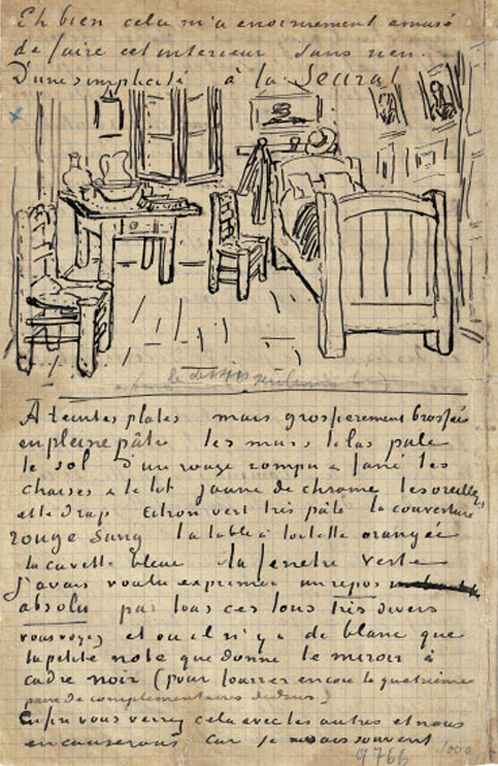 Eh bien cela m'a enormement amusé
de faire cet interieur sans rien.
D'une simplicité à la Seurat
A teintes plates mais grossierement brossées
en pleine pâte les murs lilas pale
le sol d'un rouge rompu & fané les
chaises & le lit jaune de chrome les oreillers
et le drap citron vert très pâle la couverture
rouge sang la table à toilette orangée
la cuvette bleue la fenetre verte
J'avais voulu exprimer un repos
absolu par tous ces tons très divers
vous voyez et ou il n'y a de blanc que
la petite note que donne le miroir à
cadre noir (pour fourrer encore la quatrième
paire de complementaires dedans)
Enfin vous verrez cela avec les autres et nous
en causerons car je ne sais souvent
9766